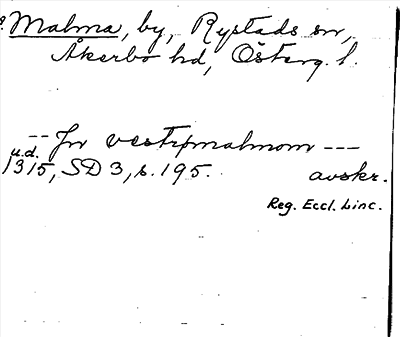 Malma, by, Rystads sn,
Åkerbo hd, Österg. l.
-- Jn vestrmalmom ---
u.d.
1315, SD 3, s. 195. avskr.
Reg. Eccl. Linc.